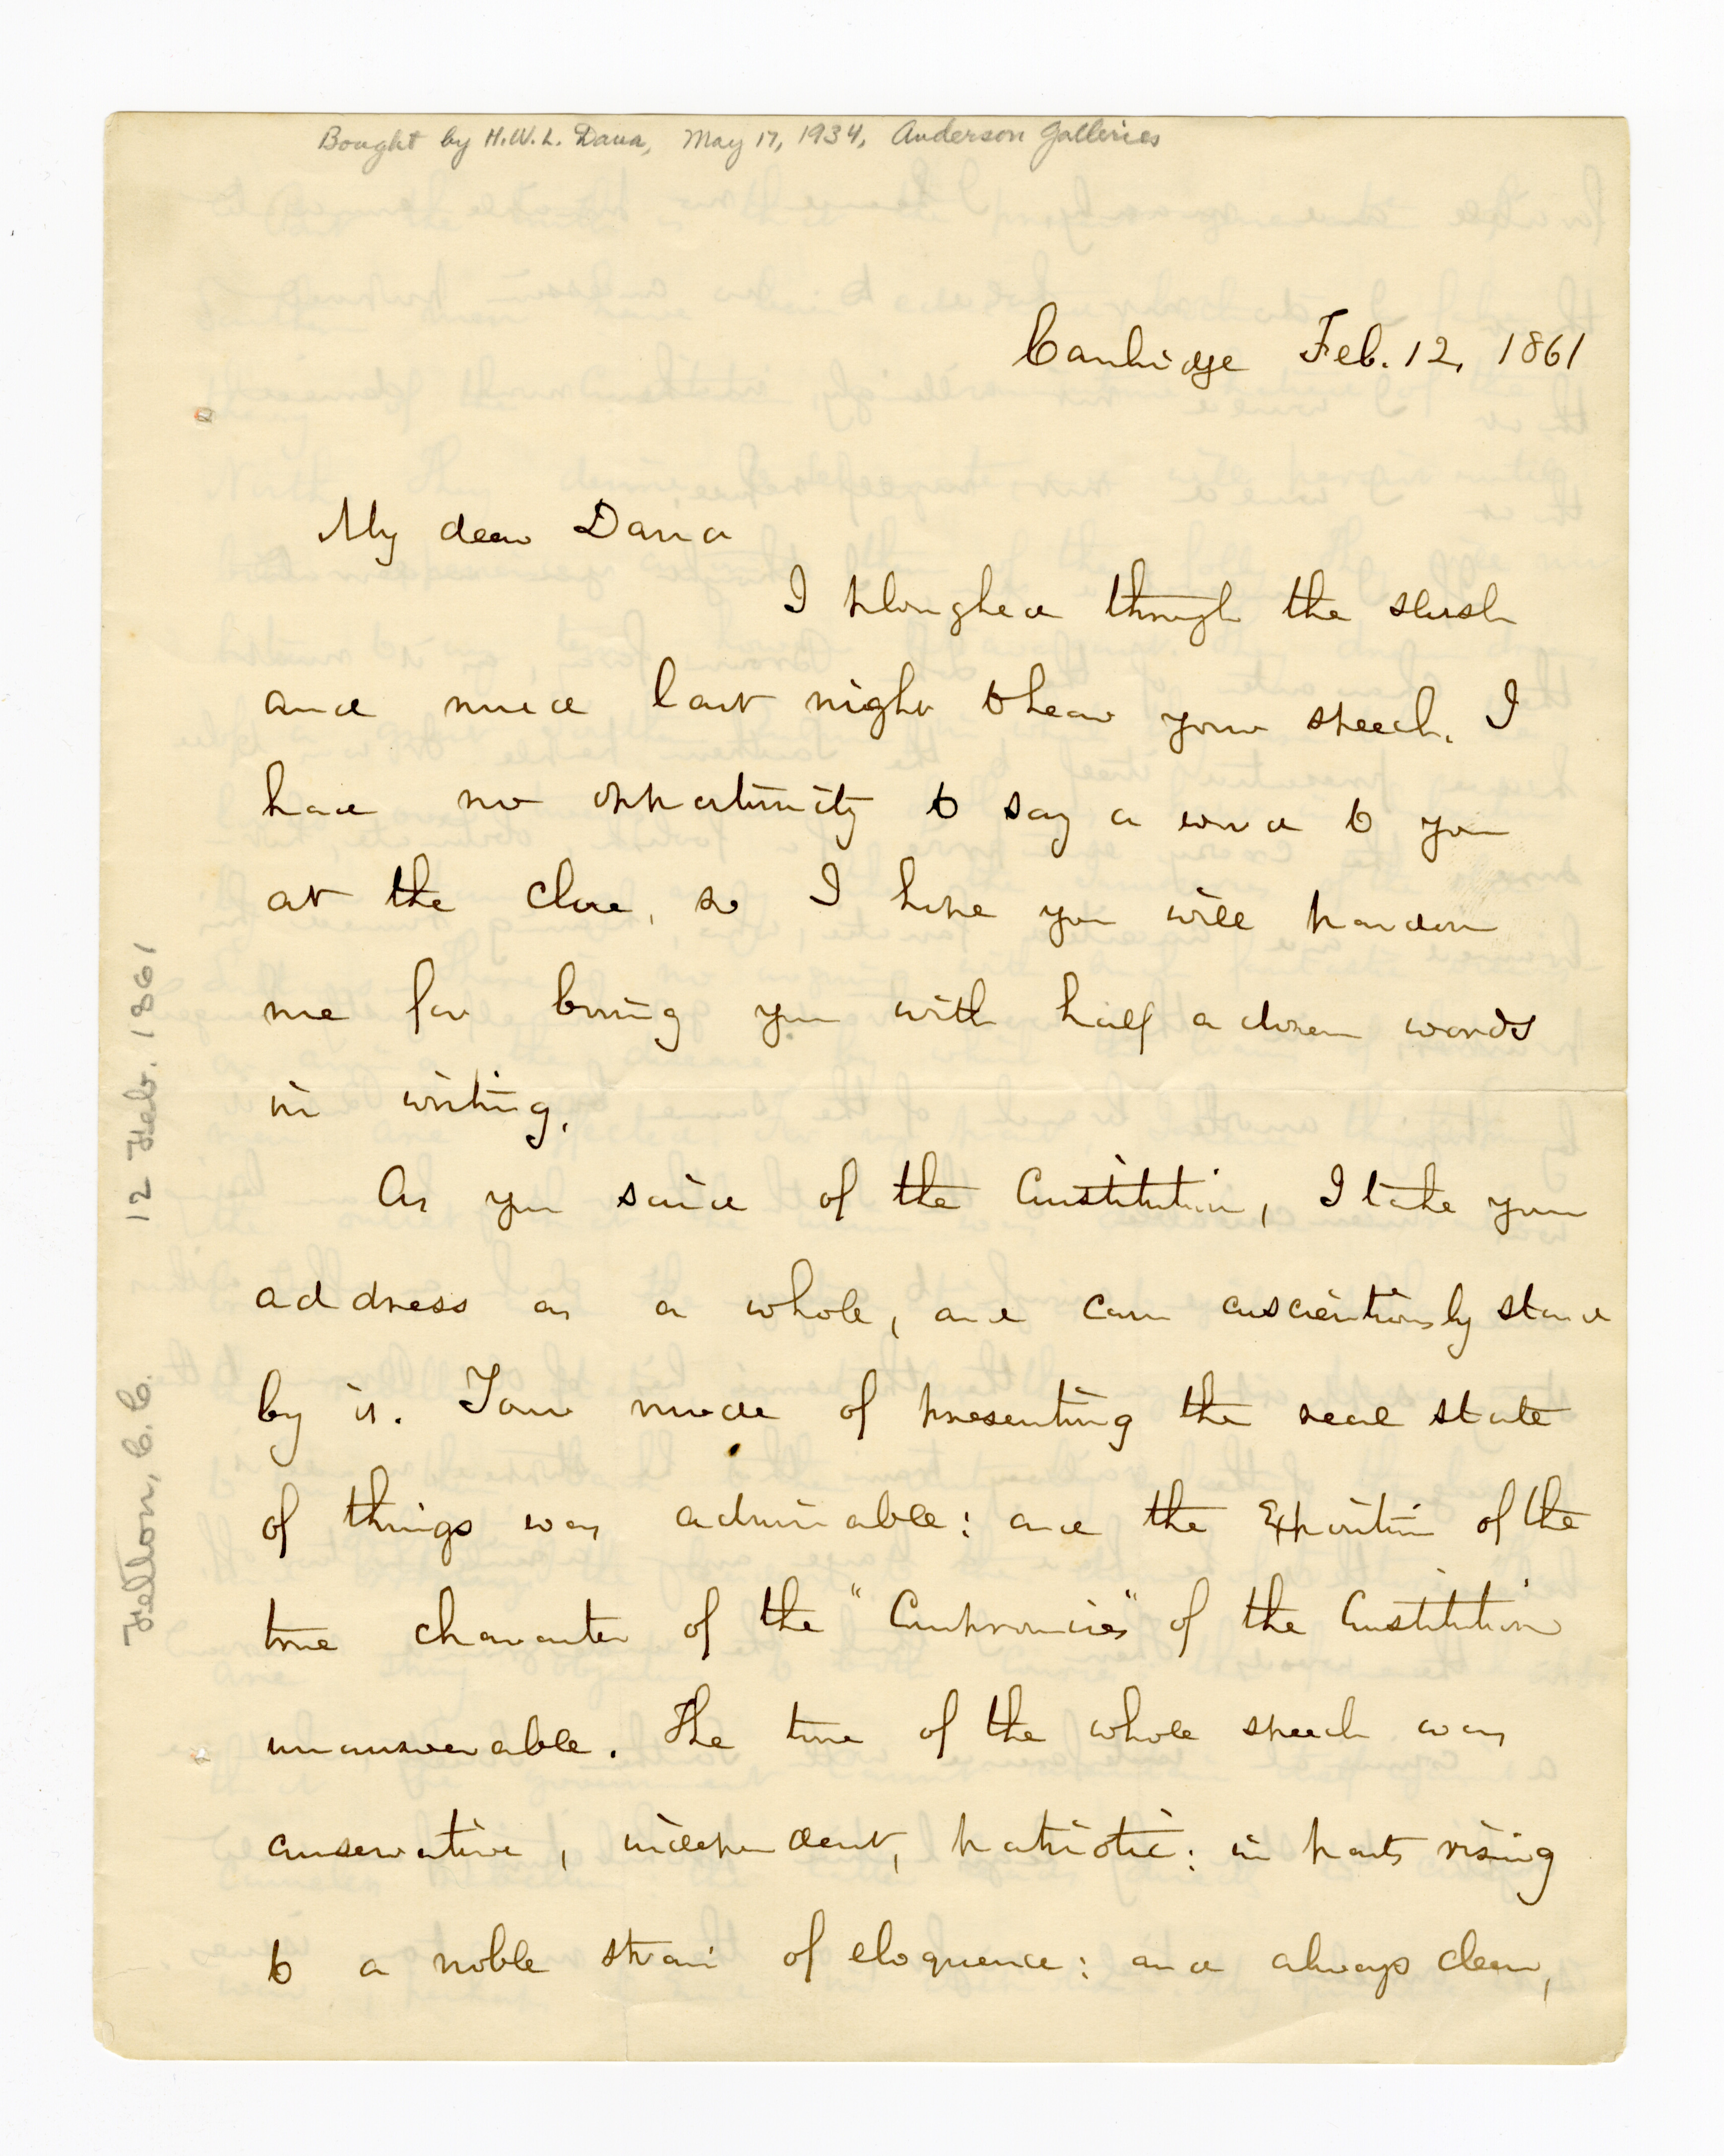 Bought by H.W.L. Dana, May 17, 1934, Anderson Galleries
Cambridge Feb. 12, 1861
My dear Dana
I ploughed through the slush
and mud last night to hear your speech. I
had no opportunity to say a word to you
at the close, so I hope you will pardon
me for boring you with half a dozen words
in writing.
As you said of the Constitution, I take your
address as a whole, and can conscientiously stand
by it. Your mode of presenting the real state
of things was admirable: and the Exposition of the
true character of the "Compromises" of the Constitution
unanswerable. The tone of the whole speech was
conservative, independent, patriotic: in parts rising
to a noble strain of eloquence: and always clear,
Felton, C. C. 12 Feb. 1861